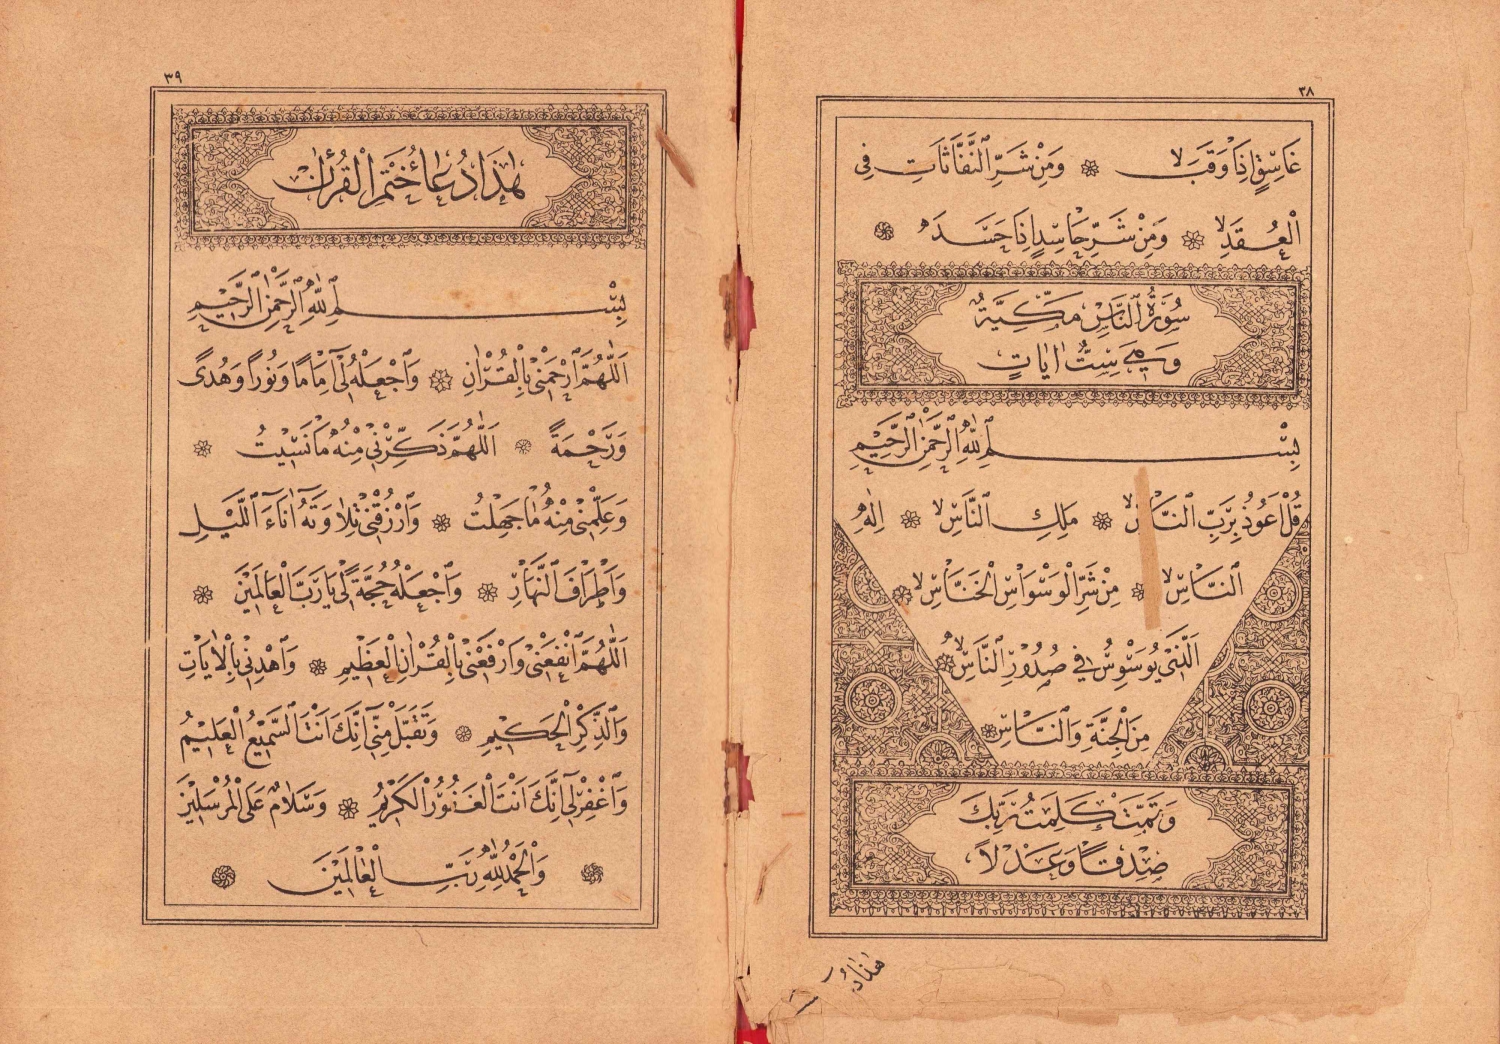 ٣٨
غَاسِقٍ اِذَا وَقَبَۙ ❁ وَمِنْ شَرِّ النَّفَّاثَاتِ فِى
الْعُقَدِۙ ❁ وَمِنْ شَرِّ حَاسِدٍ اِذَا حَسَدَ
سُورَةُ النَّاسِ مَكِّيَّةٌ
وَهِيَ سِتُّ اٰيَاتٍ
بِسْمِ اللّٰهِ الرَّحْمٰنِ الرَّحِيمِ
قُلْ اَعُوذُ بِرَبِّ النَّاسِۙ ❁ مَلِكِ النَّاسِۙ ❁ اِلٰهِ
النَّاسِۙ ❁ مِنْ شَرِّ الْوَسْوَاسِ الْخَنَّاسِۙ ❁
اَلَّذِى يُوَسْوِسُ فِى صُدُورِ النَّاسِۙ ❁
مِنَ الْجِنَّةِ وَالنَّاسِ ❁
وَتَمَّتْ كَلِمَتُ رَبِّكَ
صِدْقًا وَعَدْلًا
هٰذَا دُ
٣٩
هٰذَا دُعَاءُ خَتْمِ الْقُرْاٰنِ
بِسْمِ اللّٰهِ الرَّحْمٰنِ الرَّحِيمِ
اَللّٰهُمَّ ارْحَمْنِى بِالْقُرْاٰنِ ❁ وَاجْعَلْهُ لِى اِمَامًا وَنُورًا وَهُدًى
وَرَحْمَةً ❁ اَللّٰهُمَّ ذَكِّرْنِى مِنْهُ مَا نَسِيتُ ❁
وَعَلِّمْنِى مِنْهُ مَا جَهِلْتُ ❁ وَارْزُقْنِى تِلَاوَتَهُ اٰنَاءَ اللَّيْلِ
وَاَطْرَافَ النَّهَارِ ❁ وَاجْعَلْهُ حُجَّةً لِى يَا رَبَّ الْعَالَمِينَ ❁
اَللّٰهُمَّ انْفَعْنِى وَارْفَعْنِى بِالْقُرْاٰنِ الْعَظِيمِ ❁ وَاهْدِنِى بِالْاٰيَاتِ
وَالذِّكْرِ الْحَكِيمِ ❁ وَتَقَبَّلْ مِنِّى اِنَّكَ اَنْتَ السَّمِيعُ الْعَلِيمُ
وَاغْفِرْ لِى اِنَّكَ اَنْتَ الْغَفُورُ الْكَرِيمُ ❁ وَسَلَامٌ عَلَى الْمُرْسَلِينَ
❁ وَالْحَمْدُ لِلّٰهِ رَبِّ الْعَالَمِينَ ❁